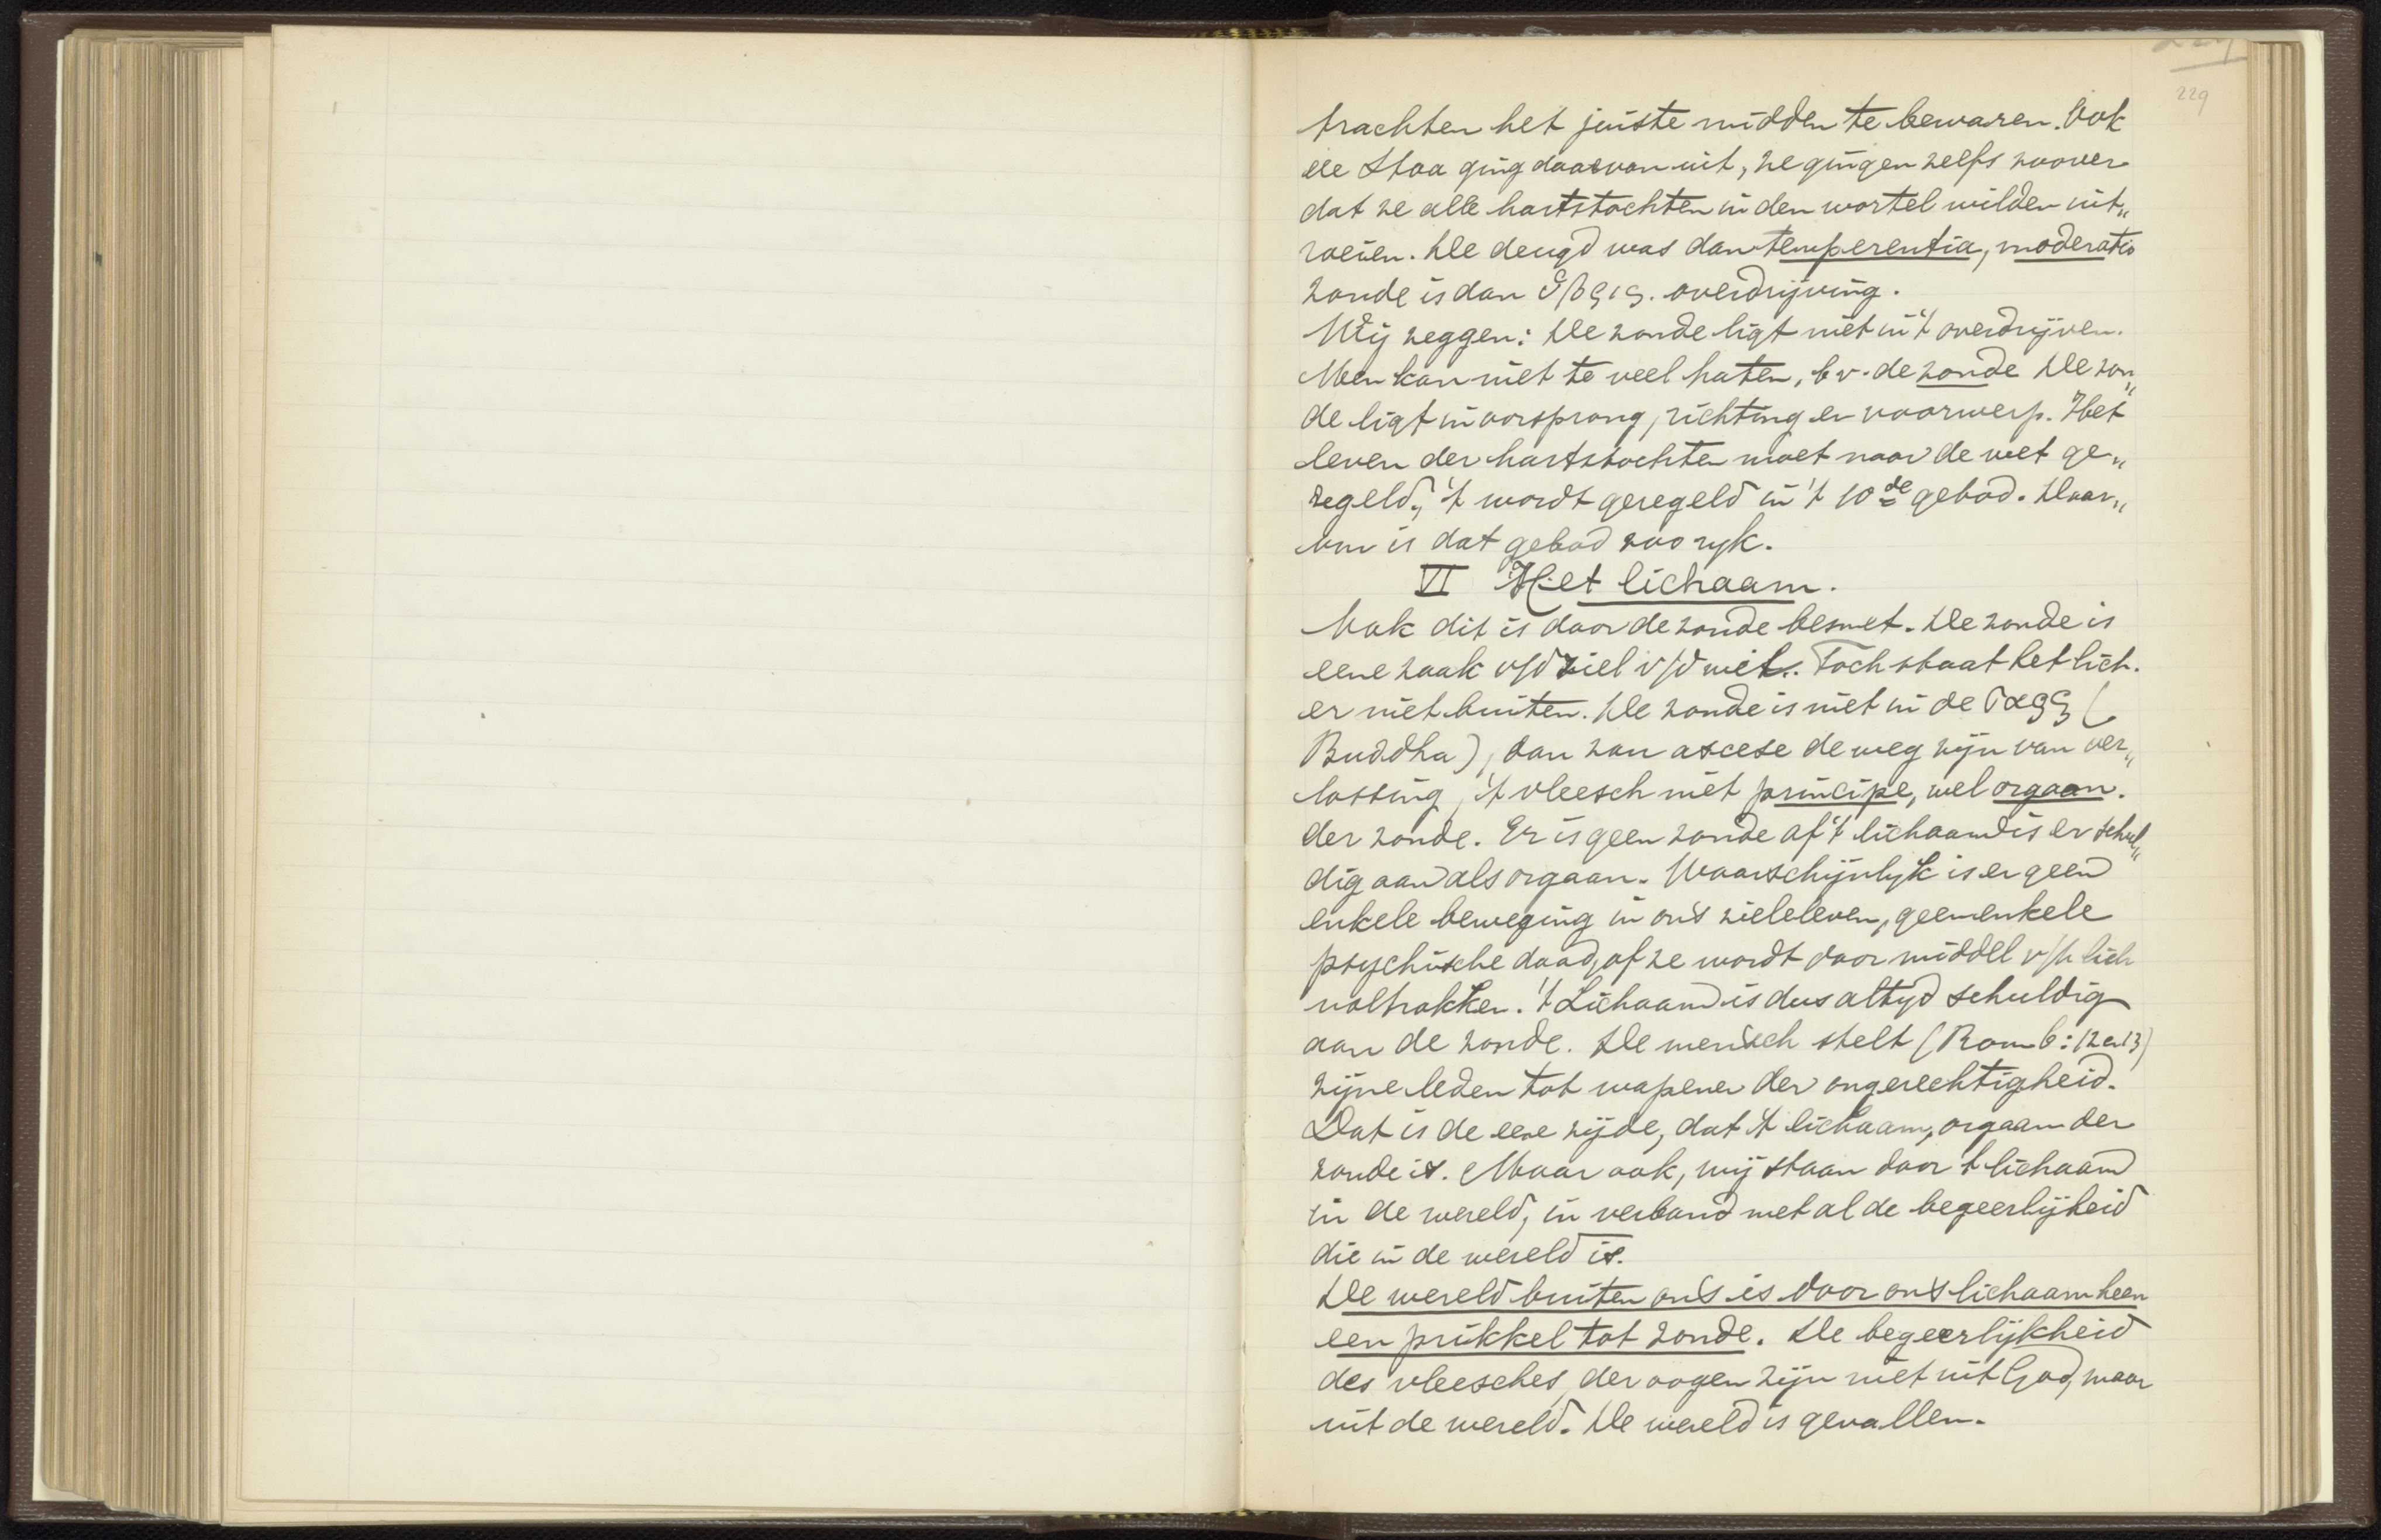 229
trachten het juiste midden te bewaren. Ook
de Stoa ging daarvan uit, ze gingen zelfs zoover
dat ze alle hartstochten in den wortel wilden uit„
roeien. De deugd was dan temperentia, moderatio
zonde is dan ὕβρις. overdrijving.
Wij zeggen: De zonde ligt niet in 't overdrijven.
Men kan niet te veel haten, b v. de zonde De zon„
de ligt in oorsprong, richting en voorwerp. Het
leven der hartstochten moet naar de wet ge„
regeld, 't wordt geregeld in 't 10de gebod. Daar„
om is dat gebod zoo ryk.
VI Het lichaam.
Ook dit is door de zonde besmet. De zonde is
eene zaak v/d ziel v/d wil. Toch staat het lich.
er niet buiten. De zonde is niet in de σαρξ (
Buddha), dan zou ascese de weg zijn van ver„
lossing, 't vleesch niet principe, wel orgaan.
der zonde. Er is geen zonde of 't lichaam is er schul„
dig aan als orgaan. Waarschijnlyk is er geen
enkele beweging in ons zieleleven, geen enkele
psychische daad, of ze wordt door middel v/h lich
voltrokken. 't Lichaam is dus altyd schuldig
aan de zonde. De mensch stelt (Rom 6:12 en 13)
zijne leden tot wapenen der ongerechtigheid.
Dat is de eene zijde, dat 't lichaam, orgaan der
zonde is. Maar ook, wij staan door 't lichaam
in de wereld, in verband met al de begeerlijkheid
die in de wereld is.
De wereld buiten ons is door ons lichaam heen
een prikkel tot zonde. De begeerlijkheid
des vleesches, der oogen zijn niet uit God, maar
uit de wereld. De wereld is gevallen.